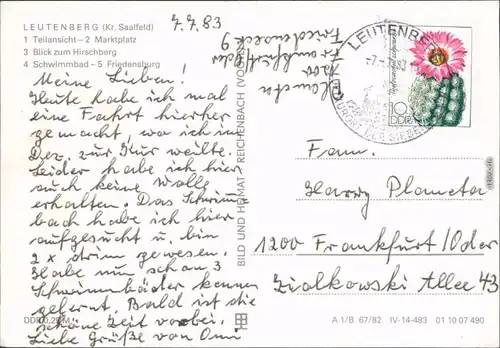 LEUTENBERG (Kr. Saalfeld)
1 Teilansicht – 2 Marktplatz
3 Blick zum Hirschberg
4 Schwimmbad – 5 Friedensburg
7.7.83
Meine Lieben!
Heute habe ich mal
eine Fahrt hierher
gemacht, wo ich im
Dez. zur Kur weilte.
Leider habe ich hier
auch keine Wolle
erhalten. Das Schwimm
bach habe ich hier
aufgesucht u. bin
2 x drin gewesen.
Habe nun schon 3
Schwimmbäder kennen
gelernt. Bald ist die
schöne Zeit vorbei.
Liebe Grüße von Omi
DDR 0,25 M
BILD UND HEIMAT REICHENBACH (VOGTL)
1200 Frankfurt/Oder
LEUTENBE
7.7.83
10
DDR
Fam.
Harry Planeta
1200 Frankfurt/Oder
Ziolkowski Allee 43
A 1/B 67/82 IV-14-483 01 10 07 490